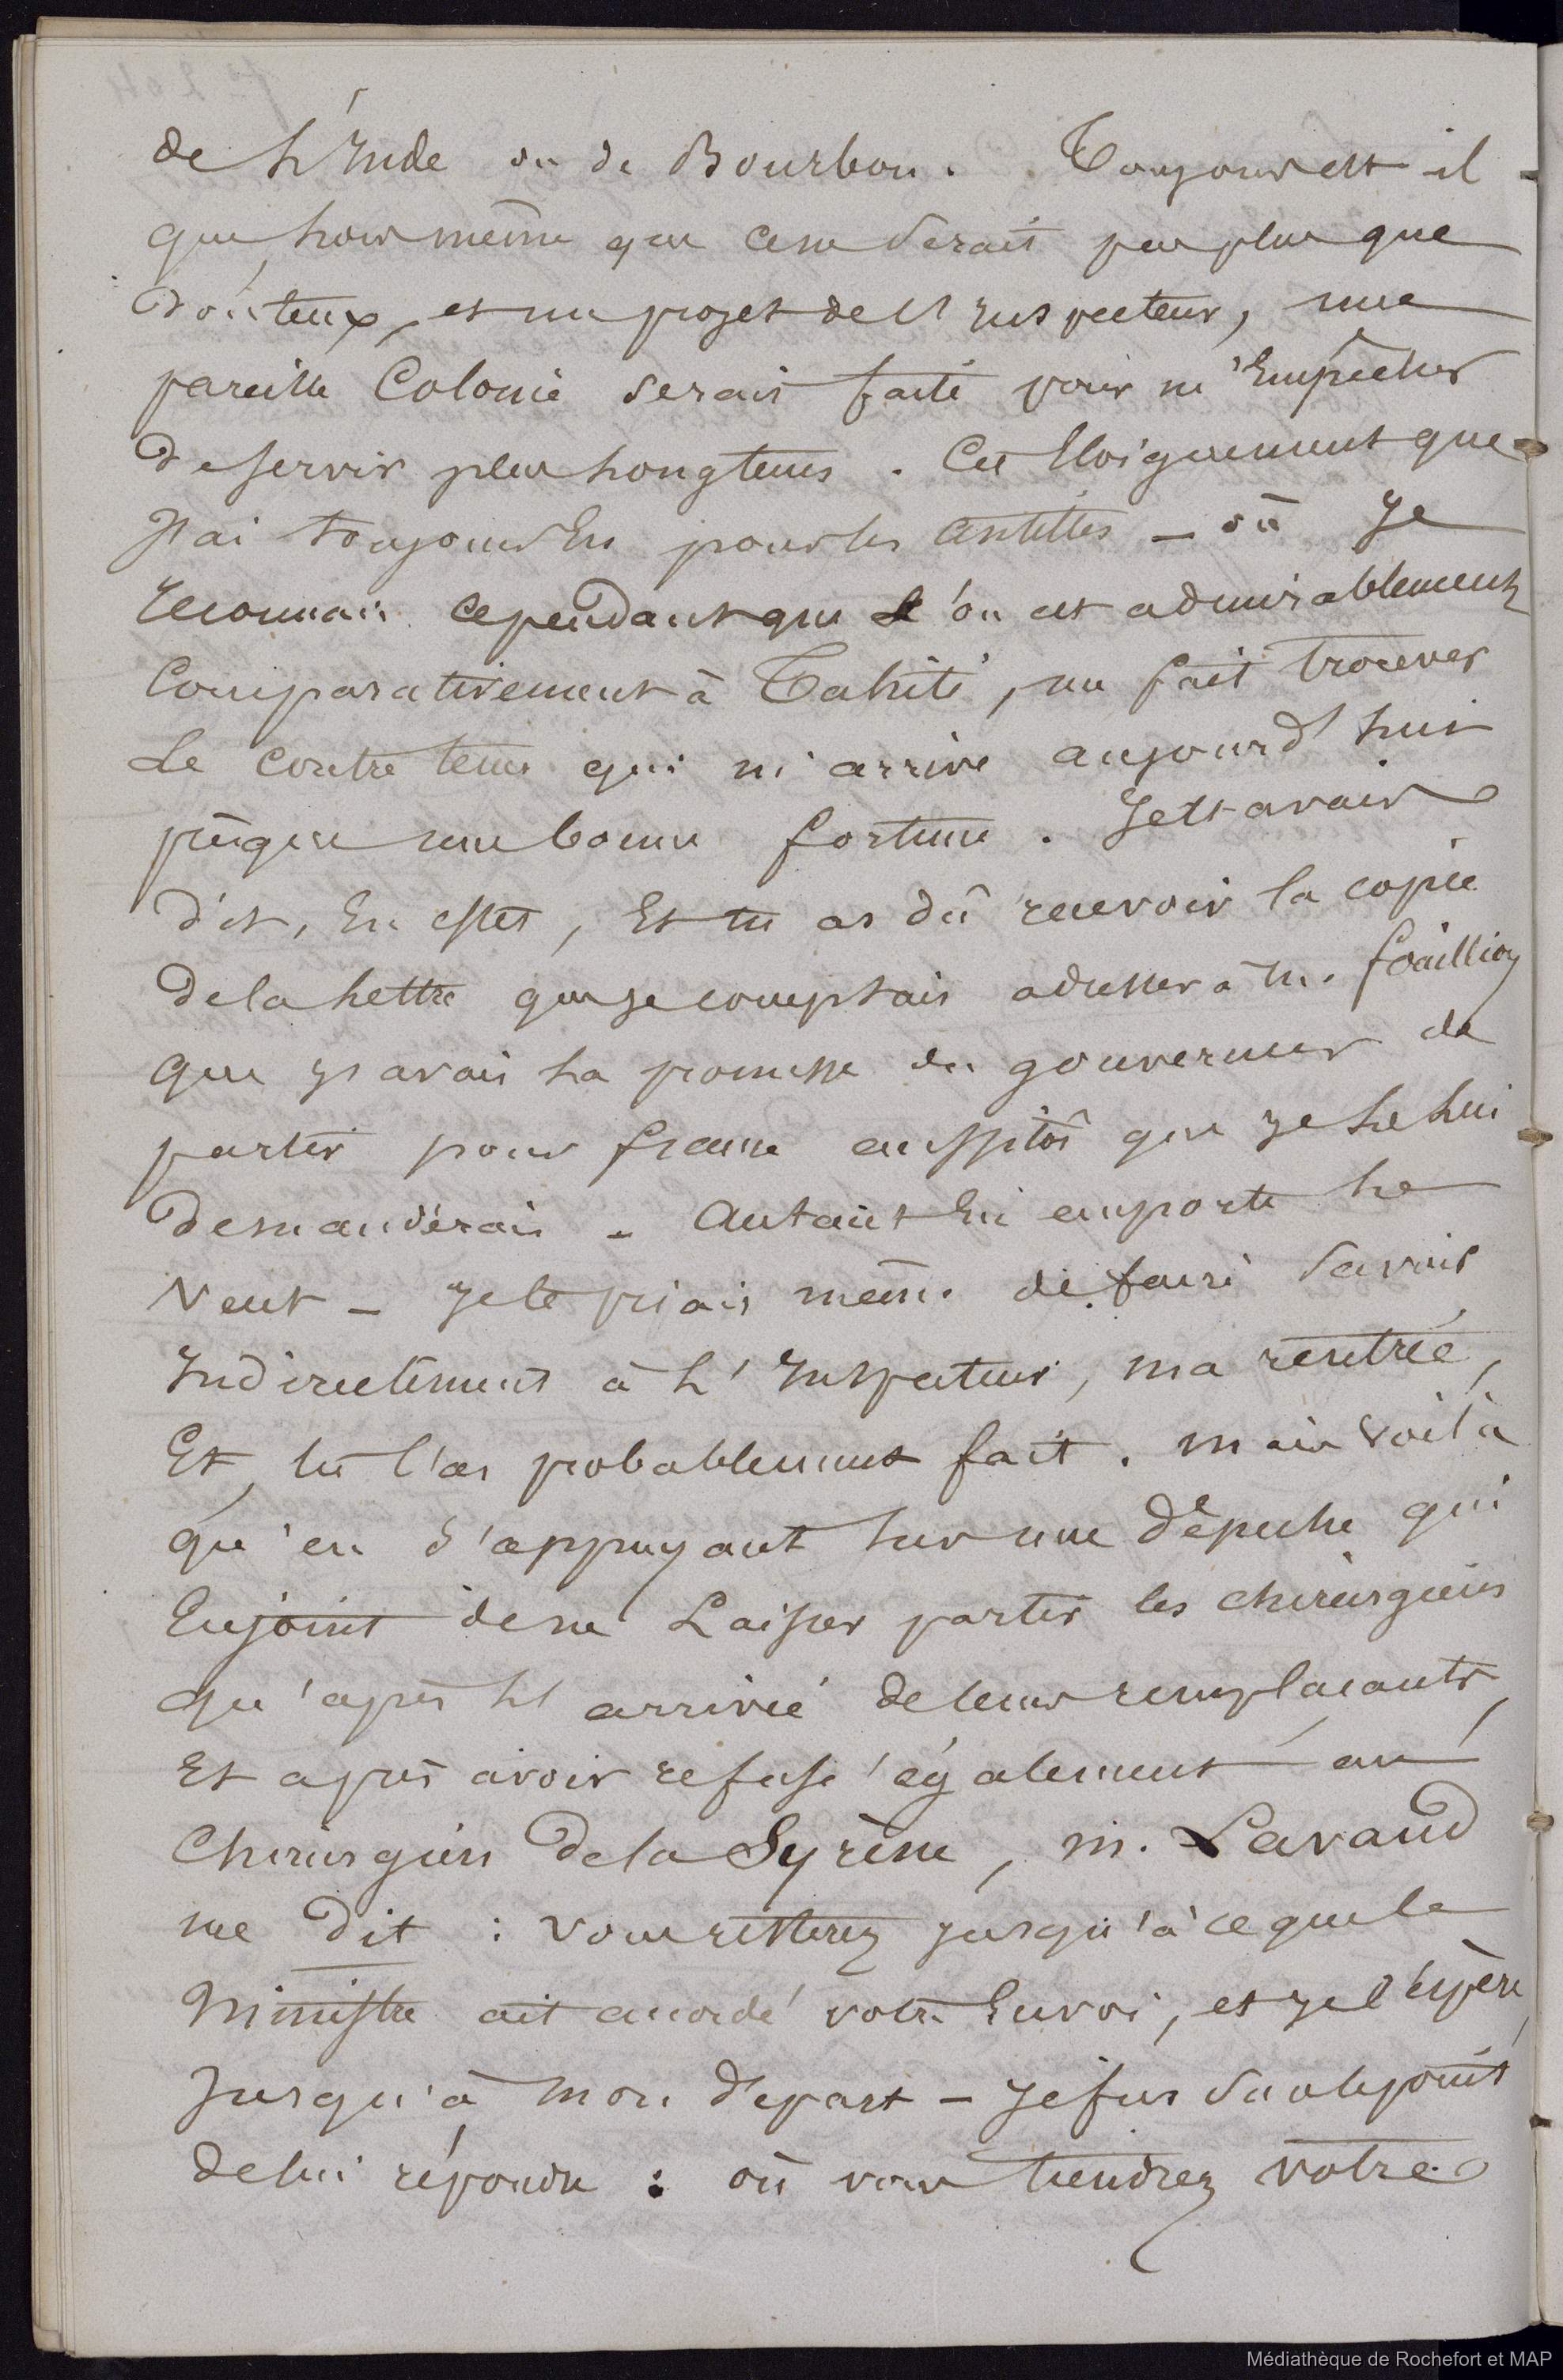 de L'Inde ou de Bourbon. Toujours est il
que hors même que ce ne serait pas plus que
douteux, et un projet de l'Inspecteur, une
pareille Colonie serait faite pour m'Empêcher
de servir plus Longtems. Cet Eloignement que
J'ai toujours Eu pour les antilles – où Je
reconnais cependant que l'on est admirablement
Comparativement à Tahiti, me fait trouver
Le contre tems qui m'arrive aujourd'hui
presque une bonne fortune. Je t'avais
dit, En effet, Et tu as dû recevoir la copie
de la Lettre que je comptais adresser à M. foullioy
que J'avais La promesse du gouverneur de
partir pour france aussitôt que Je Le Lui
demanderais – Autant En emporte Le
Vent – Je te priais même de faire Savoir
Indirectement à L'Inspecteur, ma rentrée,
Et tu l'as probablement fait. mais Voilà
qu'en S'appuyant Sur une dépêche qui
Enjoint de ne Laisser partir les chirurgiens
qu'après L'arrivée de leurs remplaçants,
Et après avoir refusé également au
Chirurgien de la Syrène, M. Lavaud
me dit : Vous resterez Jusqu'à ce que le
Ministre ait accordé votre Envoi, et Je l'espère,
Jusqu'à mon départ – Je fus Sur le point
de lui répondre : où vous tiendrez votre
Médiathèque de Rochefort et MAP